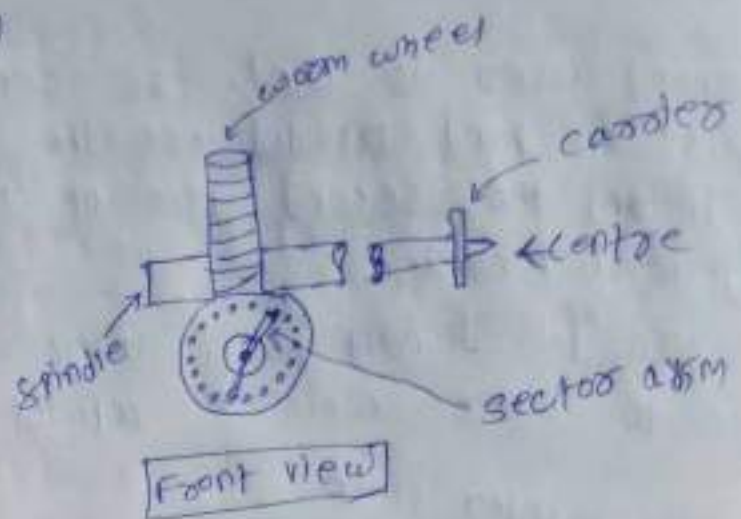 worm wheel
carrier
centre
spindle
sector arm
Front view